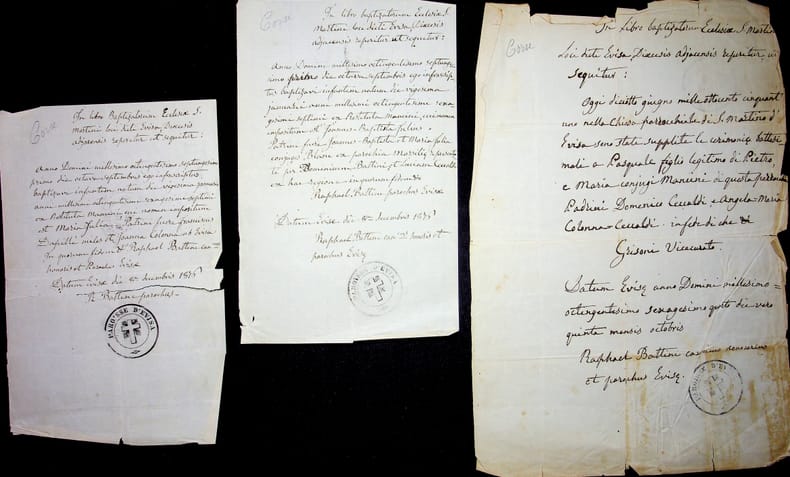 Corse
In libro Baptizatorum Ecclesiæ S.
Martini loci dicti Evisa, Diœcesis
Adjacensis reperitur ut sequitur:
Anno Domini millesimo octingentesimo septuagesimo
primo die octava septembris ego infrascriptus
baptizavi infantem natum die vigesima januarii
anni millesimi octingentesimi sexagesimi septimi
ex Restituta Mancini cui nomen impositum
est Maria Julia Patrini fuere Franciscus
miles et Joanna Colonna ex Evisa
In quorum fidem Raphael Battini
et Parochus Evisæ
Datum Evisæ die 8a decembris
R Battini parochus
PAROISSE D'EVISA
Corse
In libro baptizatorum Ecclesiæ S.
Martini loci dicti Evisa, Diœcesis
Adjacensis reperitur ut sequitur:
Anno Domini millesimo octingentesimo
primo die octava septembris ego
baptizavi infantem natum die vigesima
januarii anni millesimi octingentesimi
septimi ex Mancini, cui nomen
impositum est Joannes-Baptista Julius
Patrini fuere Joannes-Baptista et Maria Julia
conjuges ex parochia
per Battini et
ex hac regione in quorum fidem
Raphael Battini parochus Evisæ
Datum Evisæ die 8a decembris
Raphael Battini et
parochus Evisæ
PAROISSE D'EVISA
Corse
In Libro baptizatorum Ecclesiæ S. Martini
Loci dicti Evisa, Diœcesis Adjacensis reperitur, ut
sequitur:
Oggi diciotto giugno mille ottocento cinquant
uno nella Chiesa parrocchiale di S. Martino d'
Evisa sono state supplite le cerimonie battesi
mali a Pasquale figlio legitimo di Pietro,
e Maria conjugi Mancini di questa parrocchia
Padrini Domenico Ceccaldi e Angela-Maria
Colonna-Ceccaldi. in fede di che
Grisoni Vicecurato.
Datum Evisæ anno Domini millesimo
octingentesimo sexagesimo die vero
quinta mensis octobris
Raphael Battini
et parochus Evisæ.
PAROISSE D'EVISA